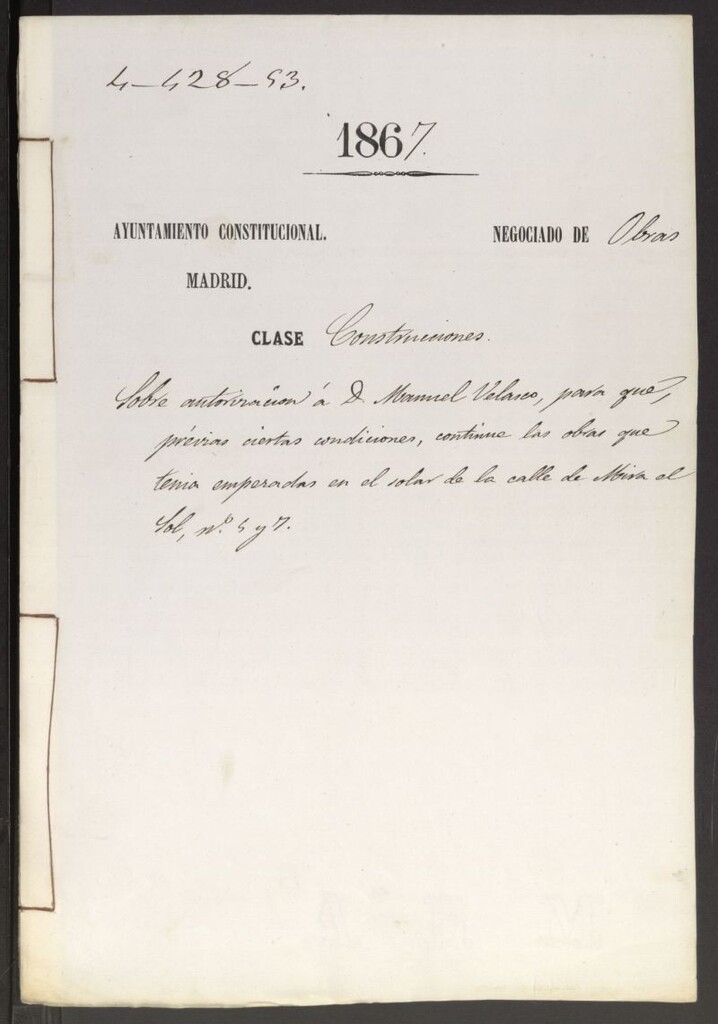 4-428-53.
1867.
AYUNTAMIENTO CONSTITUCIONAL. NEGOCIADO DE Obras
MADRID.
CLASE Construciones.
Sobre autorizacion á D. Manuel Velasco, para que,
prévias ciertas condiciones, continue las obras que
tenia emperadas en el solar de la calle de Mira el
Sol, nº 5 y 7.